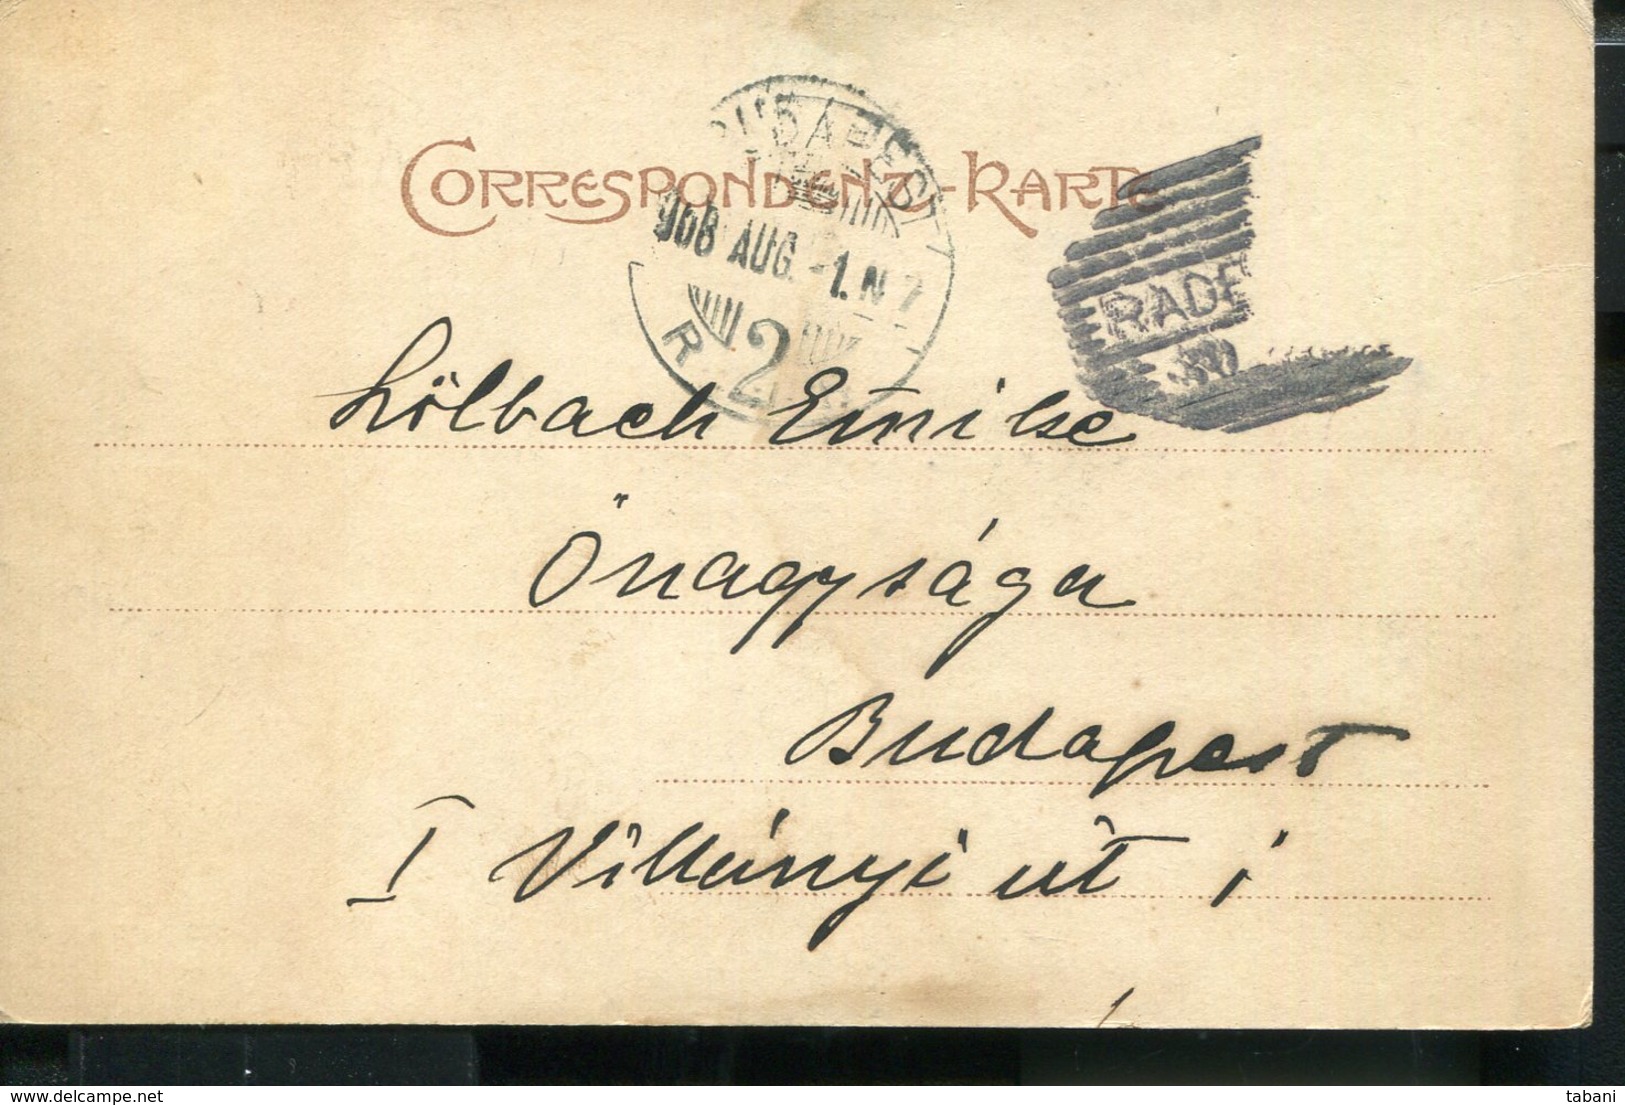 CORRESPONDENZ-KARTE
BUDAPEST
908 AUG. -1. N 7
R 2
RADE
30
Lölbach Emilse
Önagysága
Budapest
I Villányi út i
delcampe.net
tabani